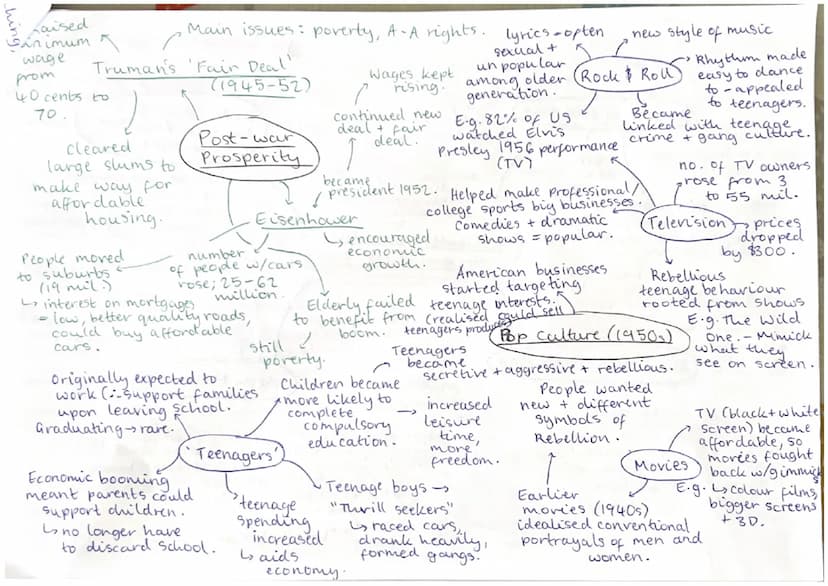 hing.
raised
minimum
wage
from
40 cents to
70.
Main issues: poverty, A-A rights.
Truman's 'Fair Deal'
(1945-52)
Post-war
Prosperity
Cleared
large slums to
make way for
affordable
housing.
Wages kept
rising.
continued new
deal + fair
deal.
became
president 1952.
Eisenhower
encouraged
economic
growth.
People moved
to suburbs
(19 mil.)
↳ interest on mortgages
= low, better quality roads,
could buy affordable
cars.
number
of people w/cars
rose; 25-62
million.
Elderly failed
to benefit from
boom.
still
poverty.
lyrics - often
sexual +
unpopular
among older
generation.
new style of music
Rock & Roll
Rhythm made
easy to dance
to - appealed
to teenagers.
E.g. 82% of US
watched Elvis
Presley 1956 performance
(TV)
Became
linked with teenage
crime + gang culture.
no. of TV owners
rose from 3
to 55 mil.
Helped make professional/
college sports big businesses.
Comedies + dramatic
shows = popular.
Television
prices
dropped
by $300.
Rebellious
teenage behaviour
rooted from shows
E.g. The Wild
One. - Mimick
what they
see on screen.
American businesses
started targeting
teenage interests.
(realised could sell
teenagers produce)
Pop Culture (1950s)
Teenagers
became
secretive + aggressive + rebellious.
Originally expected to
work (∴ support families
upon leaving school.
Graduating → rare.
Children became
more likely to
complete
compulsory
education.
→ increased
leisure
time,
more
freedom.
'Teenagers'
Economic booming
meant parents could
support children.
↳ no longer have
to discard school.
teenage
spending
increased
↳ aids
economy.
Teenage boys →
"Thrill seekers"
↳ raced cars,
drank heavily,
formed gangs.
People wanted
new + different
symbols of
Rebellion.
Movies
Earlier
movies (1940s)
idealised conventional
portrayals of men and
women.
TV (black + white
screen) became
affordable, so
movies fought
back w/gimmicks
E.g. ↳ colour films,
bigger screens
+ 3D.